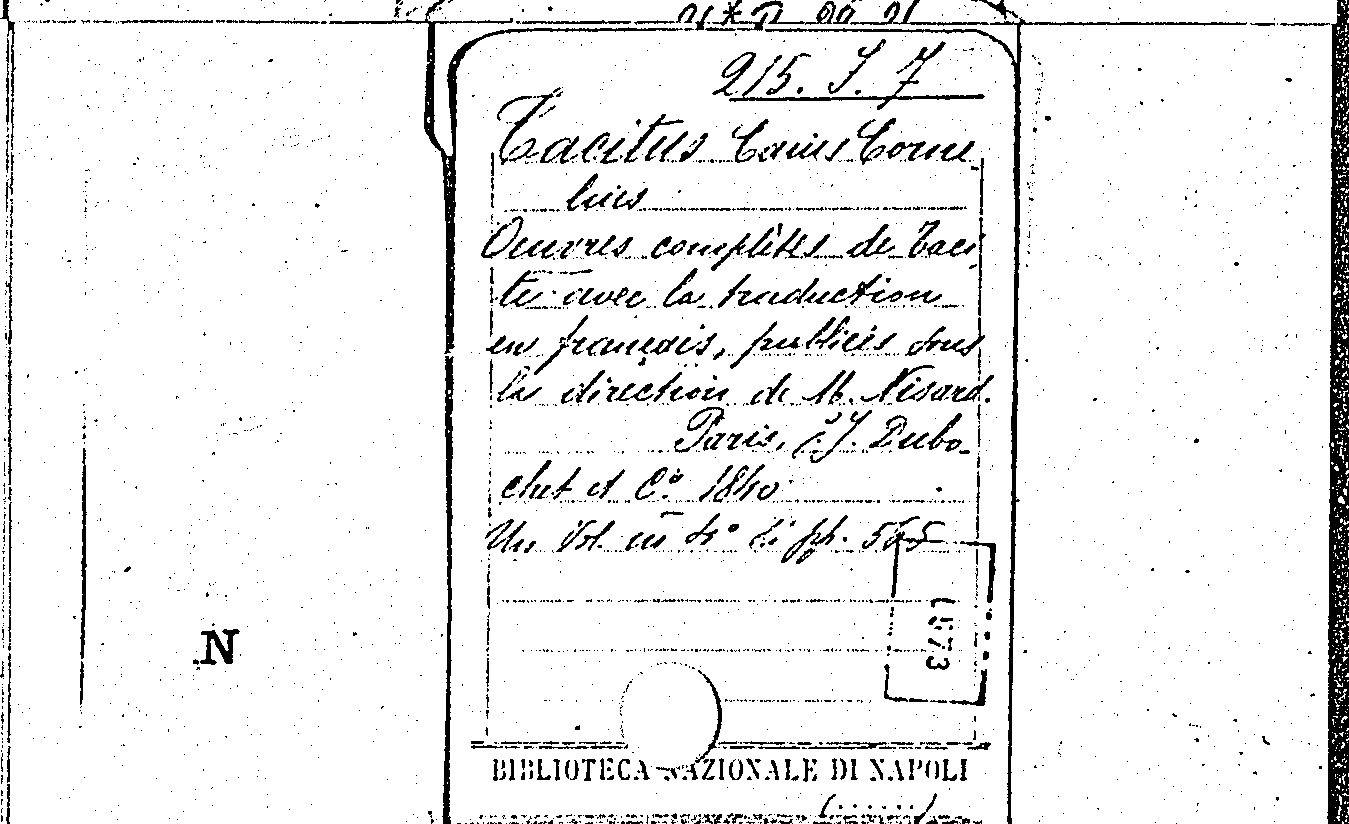 215. J. 7
Tacitus Caius Corne
lius
Oeuvres complètes de Taci
te avec la traduction
en français, publiées sous
la direction de M. Nisard.
Paris, J. J. Dubo-
chet et C.º 1840
Un Vol. in 4º di pp.
1573
N
BIBLIOTECA NAZIONALE DI NAPOLI